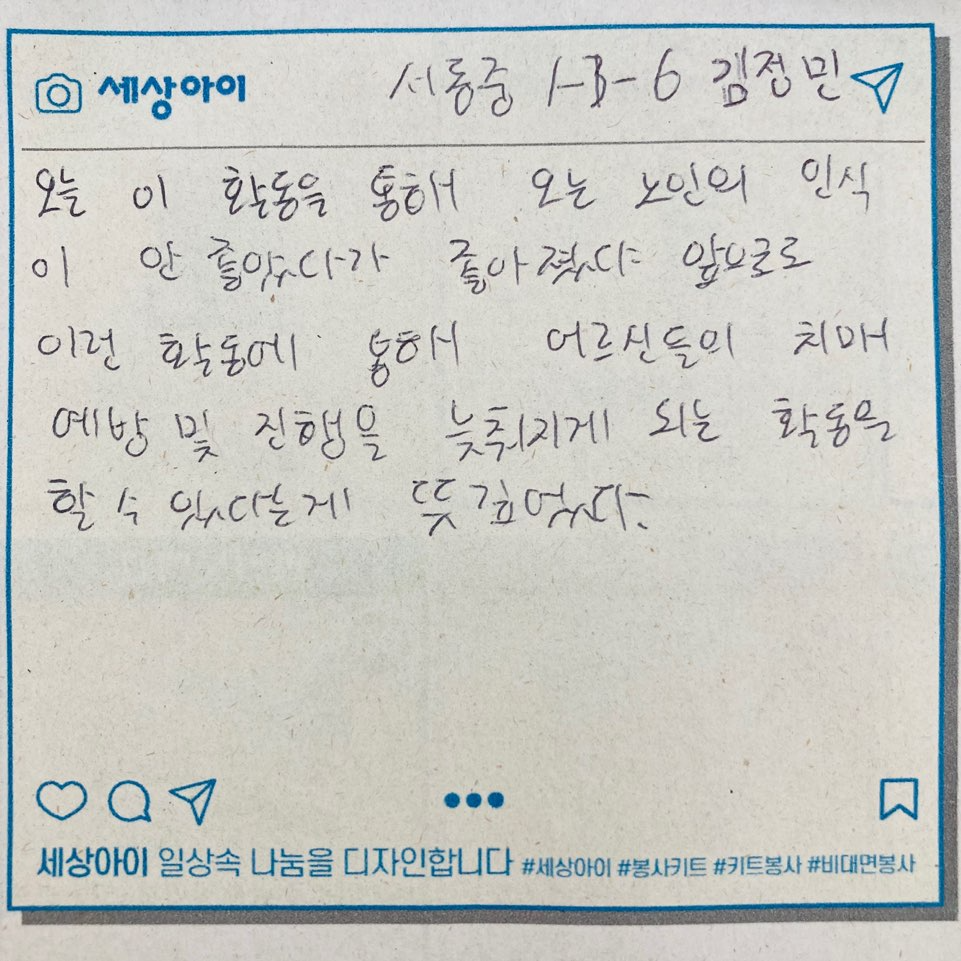 세상아이 서동중 1-3-6 김정민
오늘 이 활동을 통해 오는 노인의 인식
이 안 좋았다가 좋아졌다. 앞으로도
이런 활동에 통해 어르신들의 치매
예방 및 진행을 늦춰지게 되는 활동을
할 수 있다는게 뜻깊었다.
세상아이 일상속 나눔을 디자인합니다 #세상아이 #봉사키트 #키트봉사 #비대면봉사